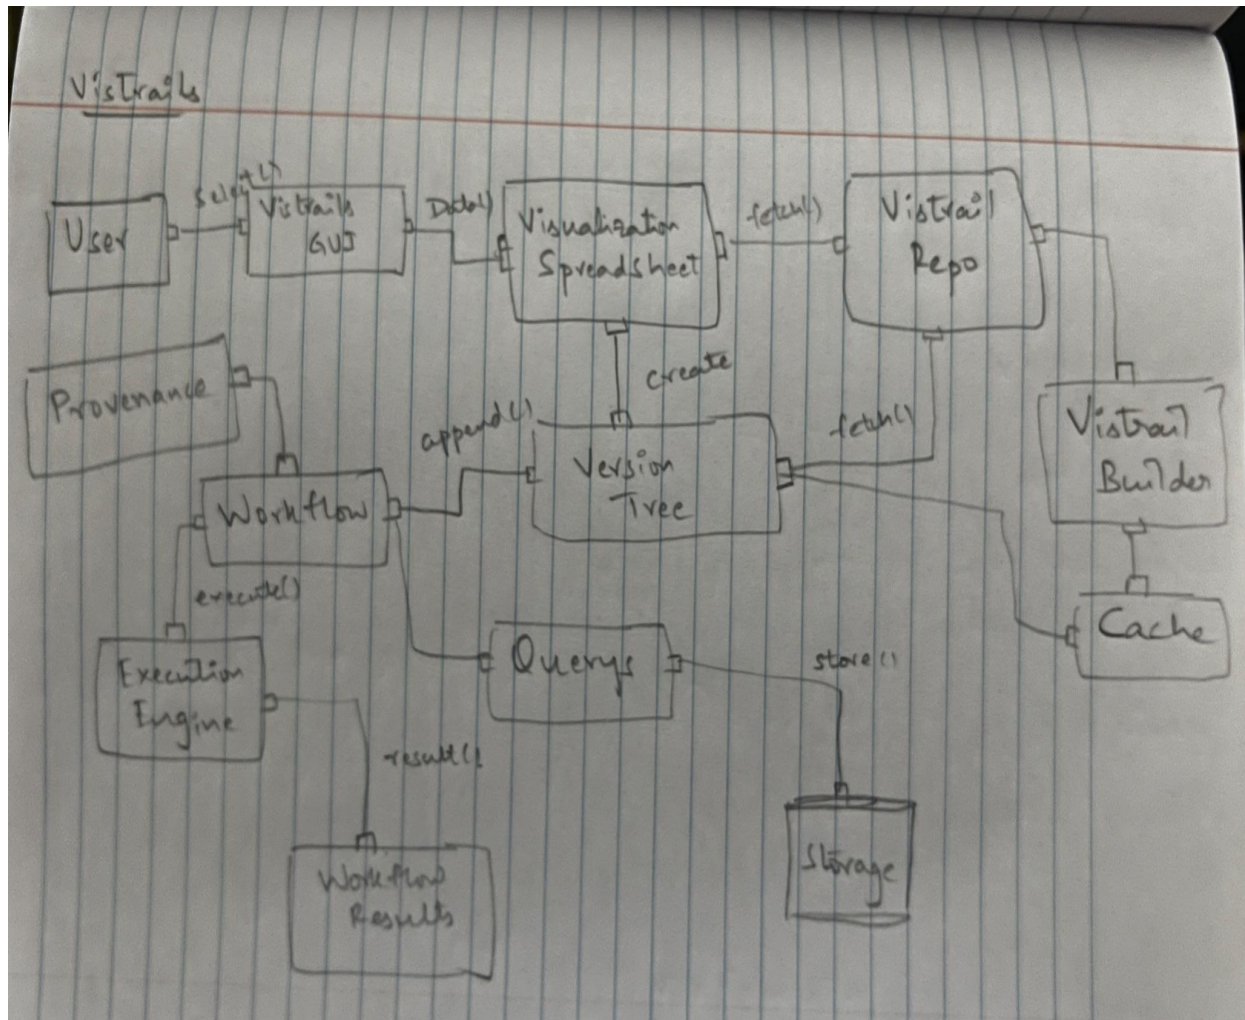 VisTrails
User
select()
Vistrails
GUI
Data()
Visualization
Spreadsheet
fetch()
Vistrail
Repo
Provenance
create
append()
Version
Tree
fetch()
Vistrail
Builder
Workflow
execute()
Querys
store()
Cache
Execution
Engine
result()
Workflow
Results
Storage